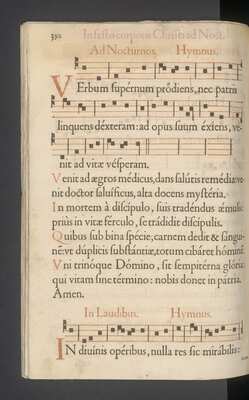 390 In festo corporis Christi ad Noct.
Ad Nocturnos. Hymnus.
VErbum supérnum pródiens, nec patris
linquens déxteram: ad opus suum éxiens, ve-
nit ad vitæ vésperam.
Venit ad ægros médicus, dans salútis remédia: ve-
nit doctor salutificus, alta docens mystéria.
In mortem à discípulo, suis tradéndus æmulis:
priùs in vitæ férculo, se trádidit discípulis.
Quibus sub bina spécie, carnem dedit & sángui-
né: vt dúplicis substántiæ, totum cibáret hóminé.
Vni trinóque Dómino, sit sempitérna glória:
qui vitam sine término: nobis donet in pátria.
Amen.
In Laudibus. Hymnus.
IN diuinis opéribus, nulla res sic mirábilis: